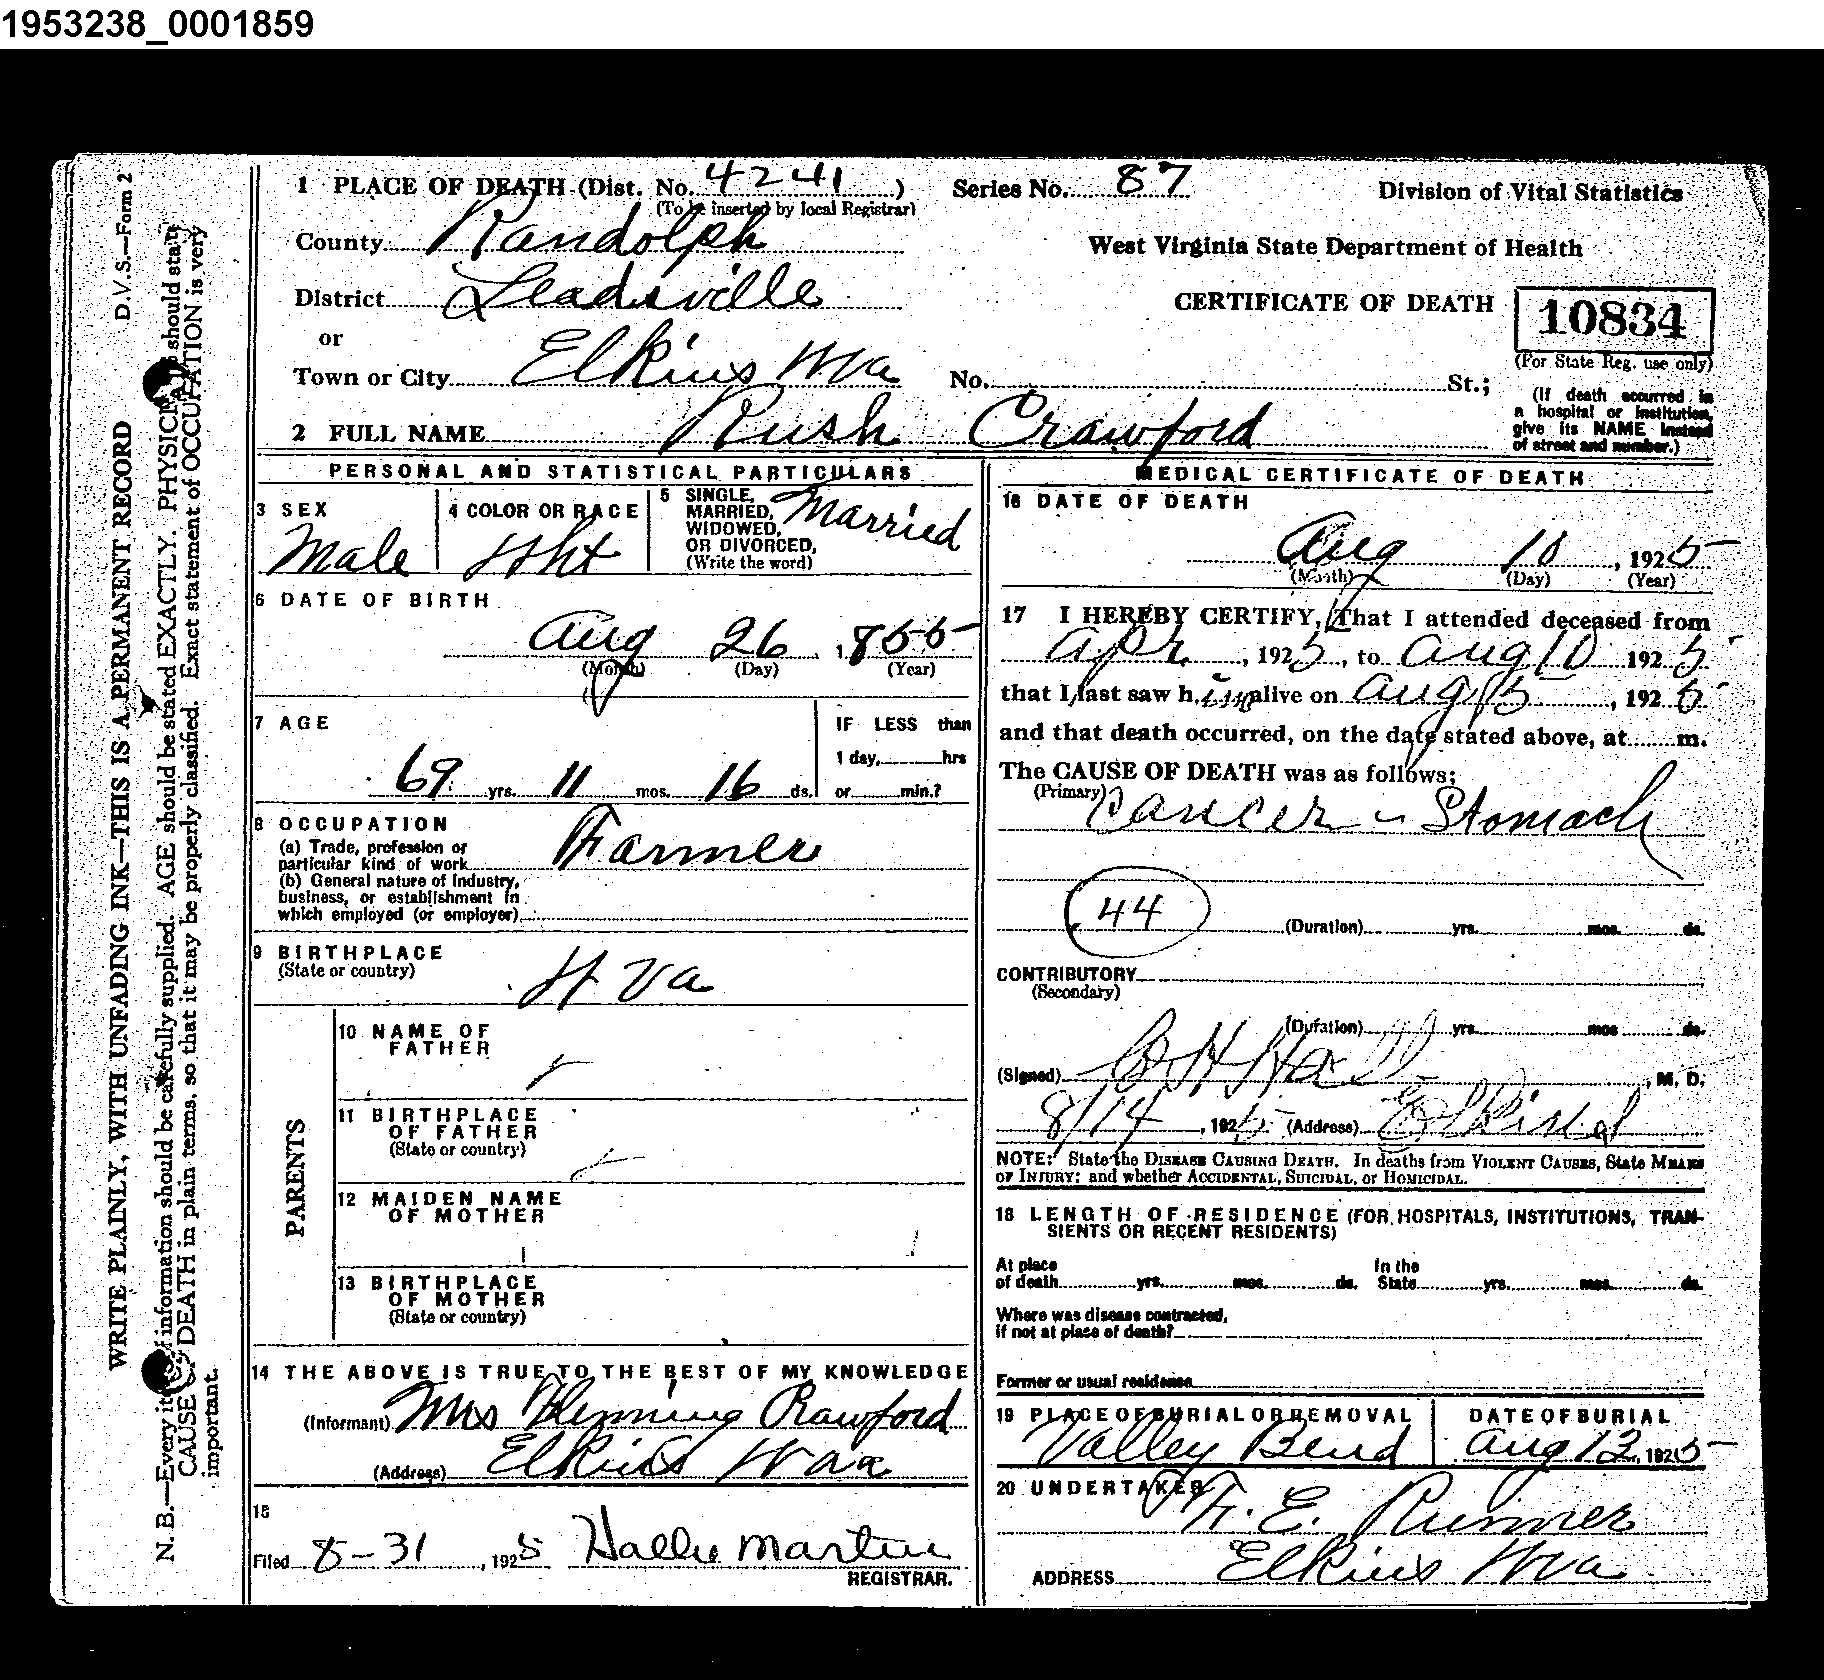 1953238_0001859
D.V.S.—Form 2
WRITE PLAINLY, WITH UNFADING INK—THIS IS A PERMANENT RECORD
N. B.—Every item of information should be carefully supplied. AGE should be stated EXACTLY. PHYSICIANS should state
CAUSE OF DEATH in plain terms, so that it may be properly classified. Exact statement of OCCUPATION is very
important.
1 PLACE OF DEATH (Dist. No. 4241 )
(To be inserted by local Registrar)
Series No. 87
Division of Vital Statistics
County Randolph
West Virginia State Department of Health
District Leadsville
CERTIFICATE OF DEATH
10834
(For State Reg. use only)
or
Town or City Elkins Wva
No. St.;
(If death occurred in
a hospital or institution,
give its NAME instead
of street and number.)
2 FULL NAME Rush Crawford
PERSONAL AND STATISTICAL PARTICULARS
3 SEX
Male
4 COLOR OR RACE
Wht
5 SINGLE,
MARRIED,
WIDOWED,
OR DIVORCED,
(Write the word)
Married
6 DATE OF BIRTH
Aug 26 , 1855
(Month) (Day) (Year)
7 AGE
69 yrs. 11 mos. 16 ds.
IF LESS than
1 day, hrs
or min.?
8 OCCUPATION
(a) Trade, profession or
particular kind of work
Farmer
(b) General nature of Industry,
business, or establishment in
which employed (or employer)
9 BIRTHPLACE
(State or country)
W Va
PARENTS
10 NAME OF
FATHER
11 BIRTHPLACE
OF FATHER
(State or country)
12 MAIDEN NAME
OF MOTHER
13 BIRTHPLACE
OF MOTHER
(State or country)
14 THE ABOVE IS TRUE TO THE BEST OF MY KNOWLEDGE
(Informant) Mrs Fleming Crawford
(Address) Elkins W va
15
Filed 8-31 , 1925 Hallie Martin
REGISTRAR.
MEDICAL CERTIFICATE OF DEATH
16 DATE OF DEATH
Aug 10 , 1925
(Month) (Day) (Year)
17 I HEREBY CERTIFY, That I attended deceased from
Apr , 1925, to Aug 10 1925
that I last saw him alive on Aug , 1925
and that death occurred, on the date stated above, at m.
The CAUSE OF DEATH was as follows;
(Primary) Cancer - Stomach
44
(Duration) yrs. mos. ds.
CONTRIBUTORY
(Secondary)
(Duration) yrs. mos. ds.
(Signed) B H Hall , M. D.
8/14 , 1925 (Address) Elkins
NOTE: State the DISEASE CAUSING DEATH. In deaths from VIOLENT CAUSES, State MEANS
OF INJURY; and whether ACCIDENTAL, SUICIDAL, or HOMICIDAL.
18 LENGTH OF RESIDENCE (FOR HOSPITALS, INSTITUTIONS, TRAN-
SIENTS OR RECENT RESIDENTS)
At place
of death yrs. mos. ds.
In the
State yrs. mos. ds.
Where was disease contracted,
if not at place of death?
Former or usual residence
19 PLACE OF BURIAL OR REMOVAL
Valley Bend
DATE OF BURIAL
Aug 12, 1925
20 UNDERTAKER
F. E. Runner
ADDRESS Elkins Wva